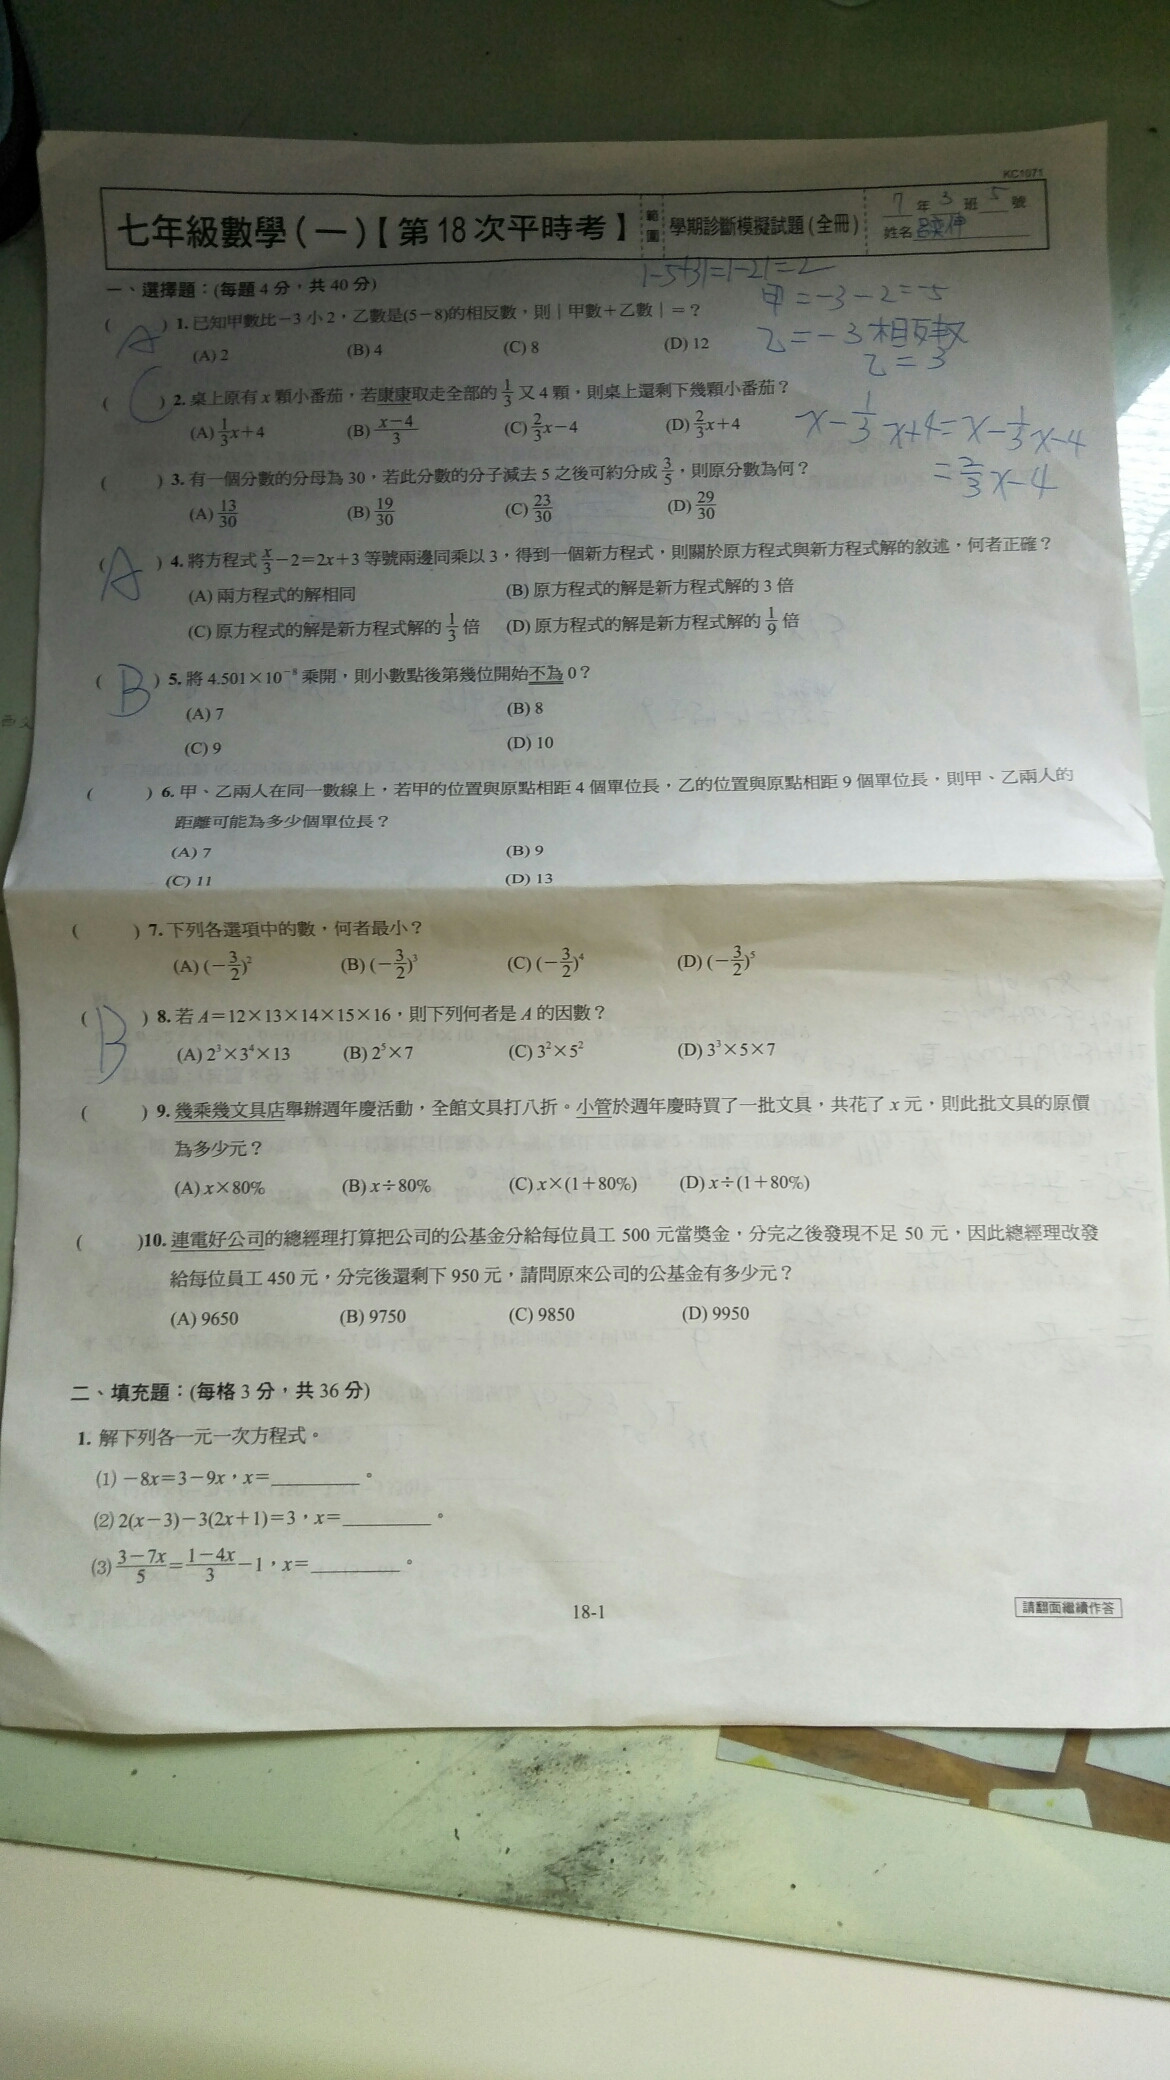 KC1071
七年級數學(一)【第18次平時考】 範圍 學期診斷模擬試題(全冊) 7年3班5號
姓名
一、選擇題：(每題4分，共40分)
|-5+3|=|-2|=2
甲=-3-2=-5
(A) 1. 已知甲數比-3小2，乙數是(5-8)的相反數，則|甲數+乙數|=？
乙=-3相反數
(A) 2 (B) 4 (C) 8 (D) 12
乙=3
(C) 2. 桌上原有x顆小番茄，若康康取走全部的1/3又4顆，則桌上還剩下幾顆小番茄？
(A) 1/3x+4 (B) x-4/3 (C) 2/3x-4 (D) 2/3x+4
x-1/3x+4=x-1/3x-4
=2/3x-4
( ) 3. 有一個分數的分母為30，若此分數的分子減去5之後可約分成3/5，則原分數為何？
(A) 13/30 (B) 19/30 (C) 23/30 (D) 29/30
(A) 4. 將方程式x/3-2=2x+3等號兩邊同乘以3，得到一個新方程式，則關於原方程式與新方程式解的敘述，何者正確？
(A) 兩方程式的解相同 (B) 原方程式的解是新方程式解的3倍
(C) 原方程式的解是新方程式解的1/3倍 (D) 原方程式的解是新方程式解的1/9倍
(B) 5. 將4.501×10⁻⁸乘開，則小數點後第幾位開始不為0？
(A) 7 (B) 8
(C) 9 (D) 10
( ) 6. 甲、乙兩人在同一數線上，若甲的位置與原點相距4個單位長，乙的位置與原點相距9個單位長，則甲、乙兩人的
距離可能為多少個單位長？
(A) 7 (B) 9
(C) 11 (D) 13
( ) 7. 下列各選項中的數，何者最小？
(A) (-3/2)² (B) (-3/2)³ (C) (-3/2)⁴ (D) (-3/2)⁵
(B) 8. 若A=12×13×14×15×16，則下列何者是A的因數？
(A) 2³×3⁴×13 (B) 2⁵×7 (C) 3²×5² (D) 3³×5×7
( ) 9. 幾乘幾文具店舉辦週年慶活動，全館文具打八折。小管於週年慶時買了一批文具，共花了x元，則此批文具的原價
為多少元？
(A) x×80% (B) x÷80% (C) x×(1+80%) (D) x÷(1+80%)
( )10. 連電好公司的總經理打算把公司的公基金分給每位員工500元當獎金，分完之後發現不足50元，因此總經理改發
給每位員工450元，分完後還剩下950元，請問原來公司的公基金有多少元？
(A) 9650 (B) 9750 (C) 9850 (D) 9950
二、填充題：(每格3分，共36分)
1. 解下列各一元一次方程式。
(1) -8x=3-9x，x=________。
(2) 2(x-3)-3(2x+1)=3，x=________。
(3) 3-7x/5=1-4x/3-1，x=________。
18-1
請翻面繼續作答